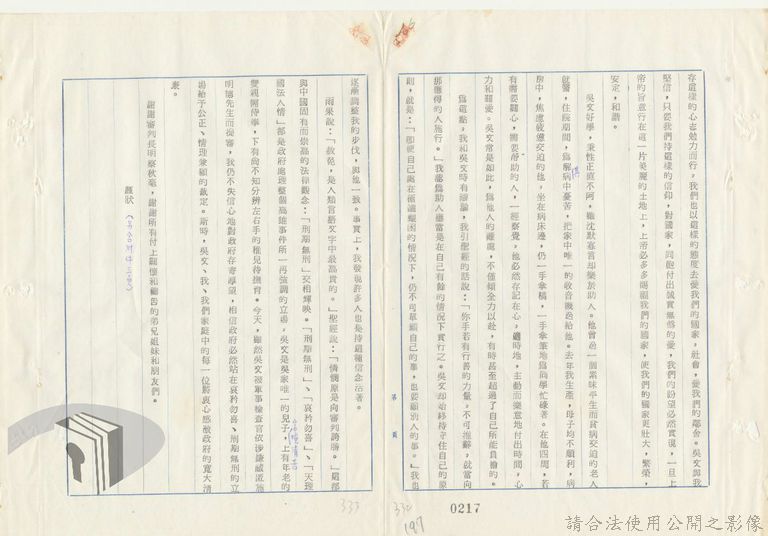 存這樣的心志勉力而行,我們也以這樣的態度去愛我們的國家,社會,愛我們的鄰舍。吳文與我
堅信,只要我們持這樣的信仰,對國家,同胞付出誠實無偽的愛,我們的盼望必然實現,一旦上
帝的旨意行在這一片美麗的土地上,上帝必多多賜福我們的國家,使我們的國家更壯大,繁榮,
安定,和諧。
吳文好學,秉性正直不阿,雖沈默寡言却樂於助人。他曾為一個素昧平生而貧病交迫的老人
就醫,住院期間,為解病中憂苦,把家中唯一的收音機送給他。去年我生產,母子均不順利,病
房中,焦慮疲憊交迫的他,坐在病床邊,仍一手拿稿,一手拿筆地為同學忙碌著。在他四周,若
有需要關心,需要幫助的人,一經察覺,他必然存記在心,適時地,主動而樂意地付出時間,心
力和關愛。吳文常是如此,為他人的難處,不僅傾全力以赴,有時甚至超過了自己所能負擔的。
為這點,我和吳文時有辯論,我引聖經的話說:「你手若有行善的力量,不可推辭,就當向
那應得的人施行。」我認為助人應當是在自己有餘的情況下實行之。吳文却始終持守住自己的原
則,就是:「即使自己處在極艱困的情況下,仍不可單顧自己的事,也要顧別人的事。」我也
第 頁
逐漸調整我的步伐,與他一致。事實上,我發現許多人也是持這種信念活著。
雨果說:「赦免,是人類言語文字中最高貴的。」聖經說:「憐憫原是向審判誇勝。」這都
與中國固有而崇高的法律觀念:「刑期無刑」交相輝映。「刑期無刑」、「哀矜勿喜」、「天理
國法人情」都是政府處理整個高雄事件所一再強調的立場。吳文是吳家唯一的兒子,上有年老的
雙親需侍奉,下有尚不知分辨左右手的稚兒待撫育。今天,雖然吳文被軍事檢查官依涉嫌藏匿施
明德先生而提審,我仍不失信心地對政府存著厚望,相信政府必然站在哀矜勿喜、刑期無刑的立
場給予公正、情理兼顧的裁定。斯時,吳文、我、我們家庭中的每一位將衷心感激政府的寬大清
廉。
謝謝審判長明察秋毫,謝謝所有付上關懷和禱告的弟兄姐妹和朋友們。
謹狀
333
332
197
0217
請合法使用公開之影像